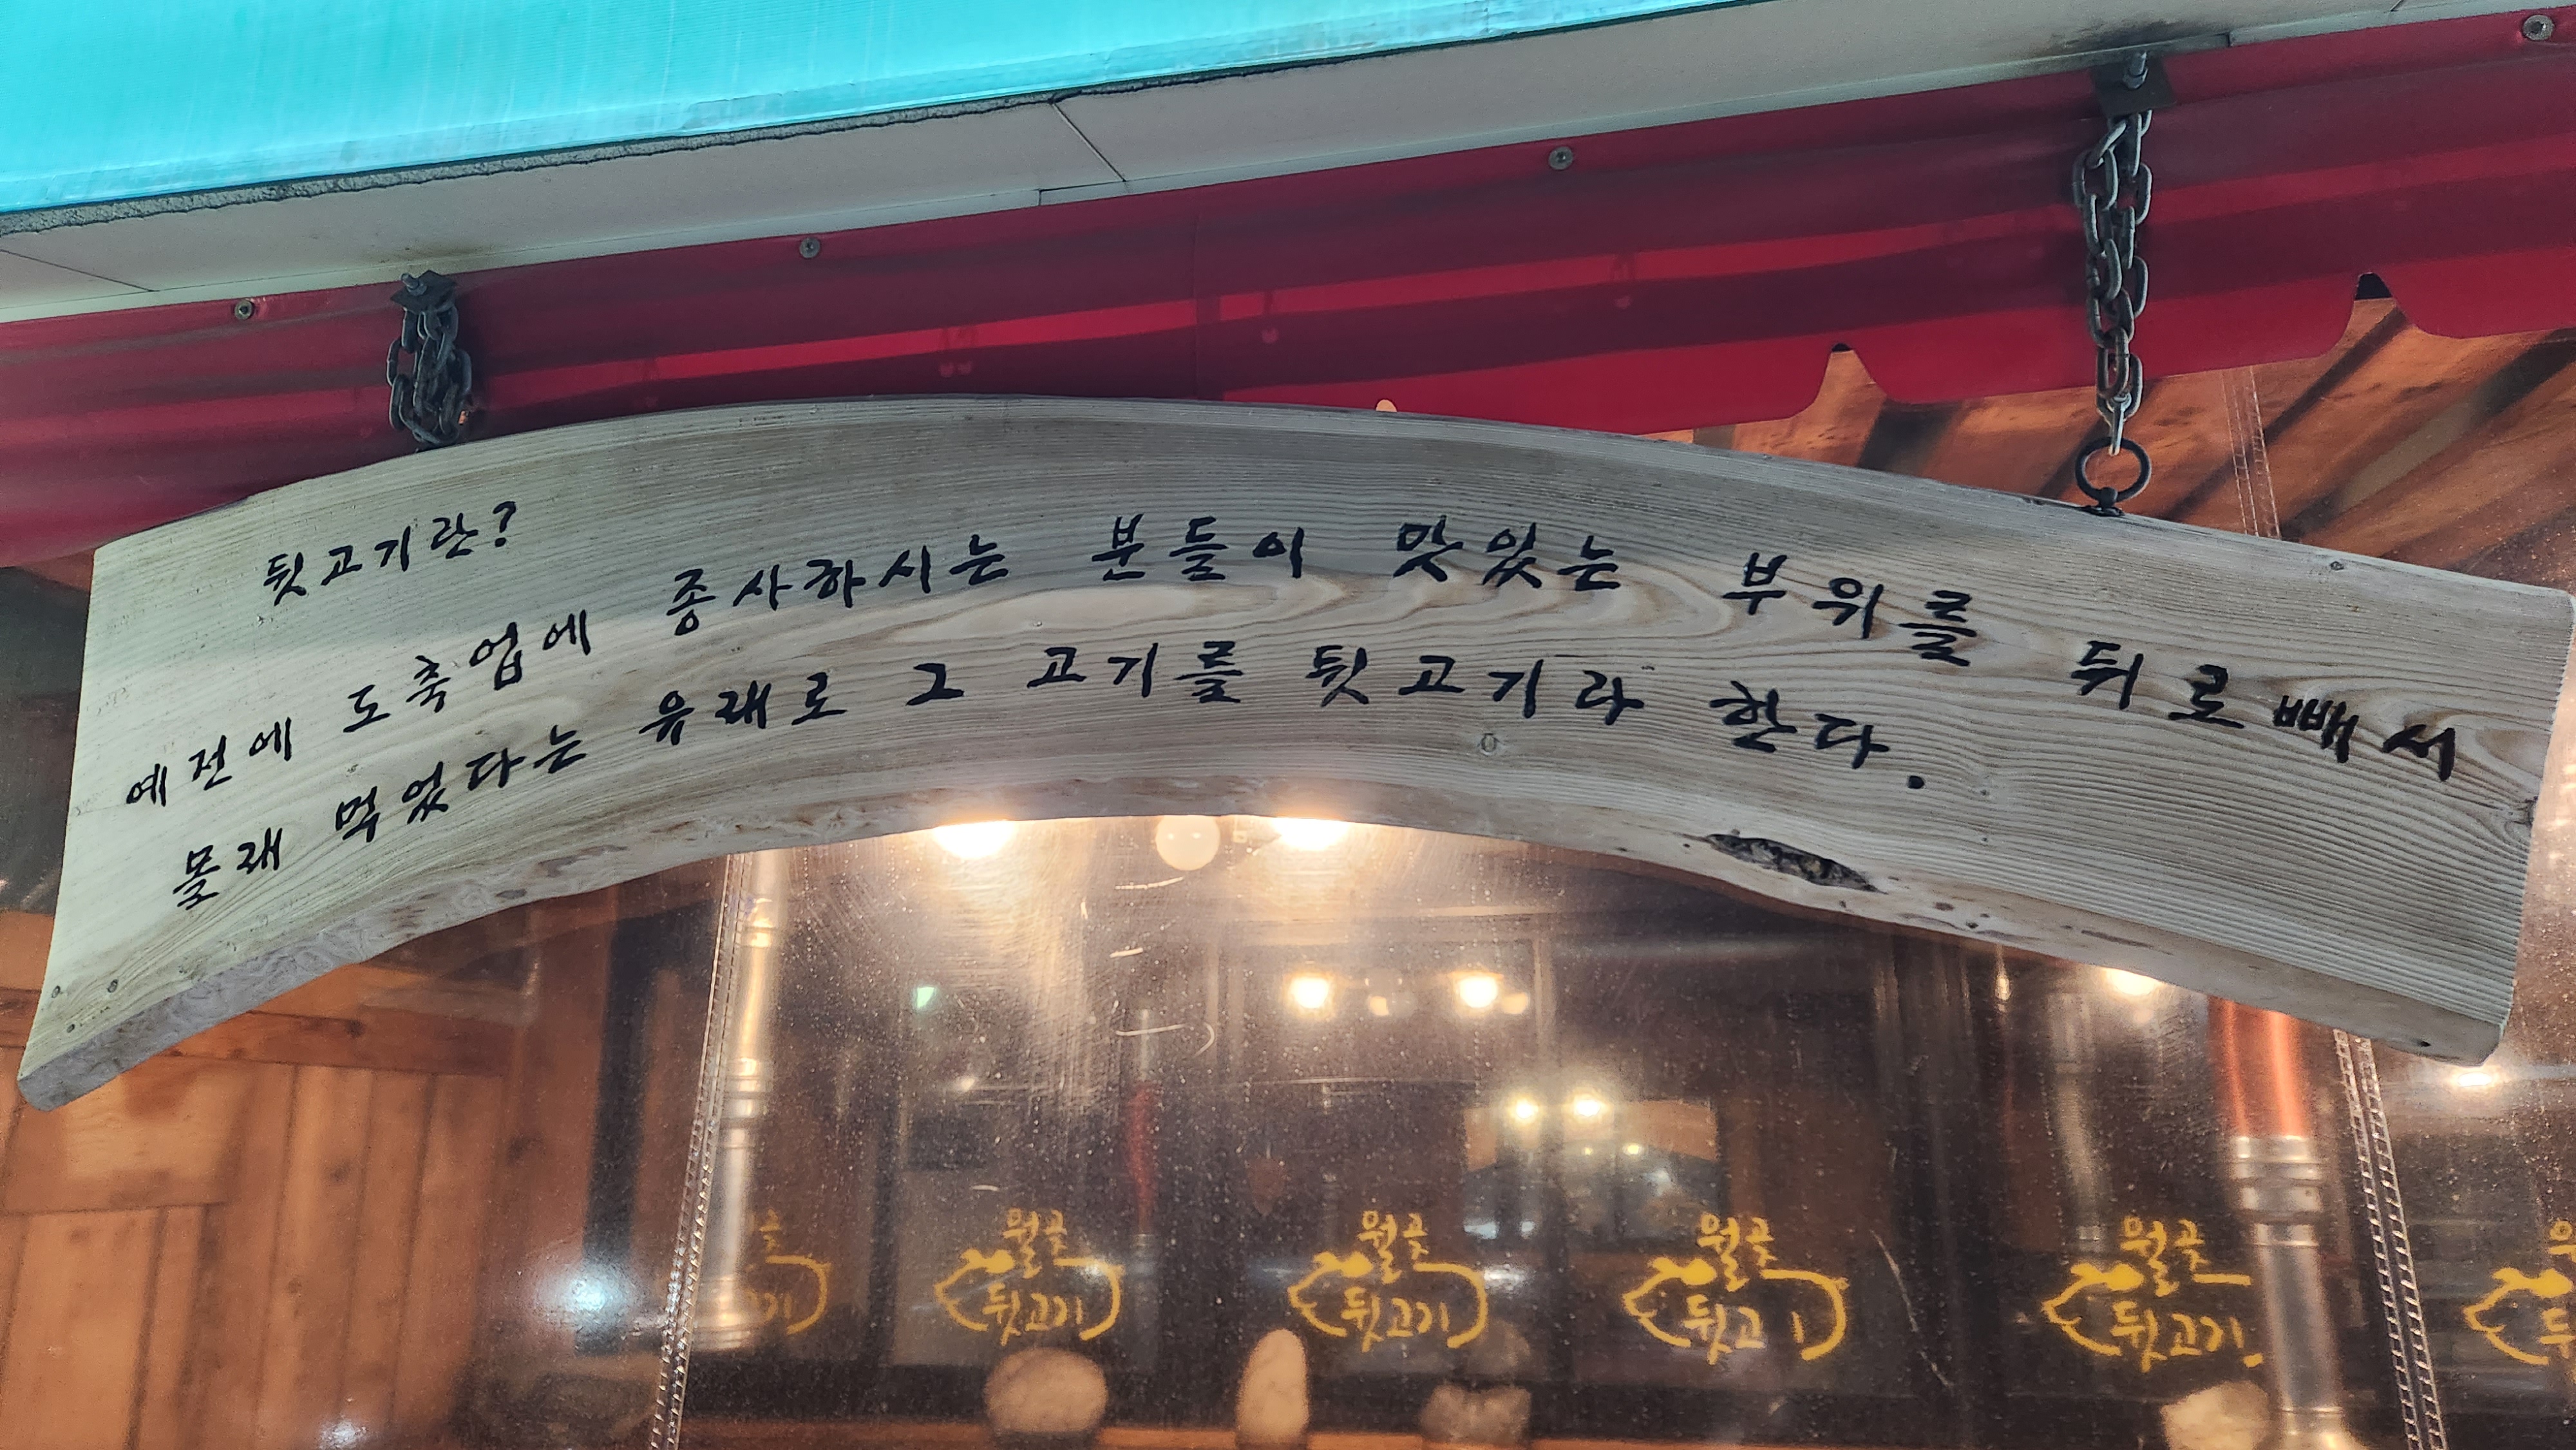 뒷고기란?
예전에 도축업에 종사하시는 분들이 맛있는 부위를 뒤로빼서
몰래 먹었다는 유래로 그 고기를 뒷고기라 한다.
월곶
뒷고기
월곶
뒷고기
월곶
뒷고기
월곶
뒷고기